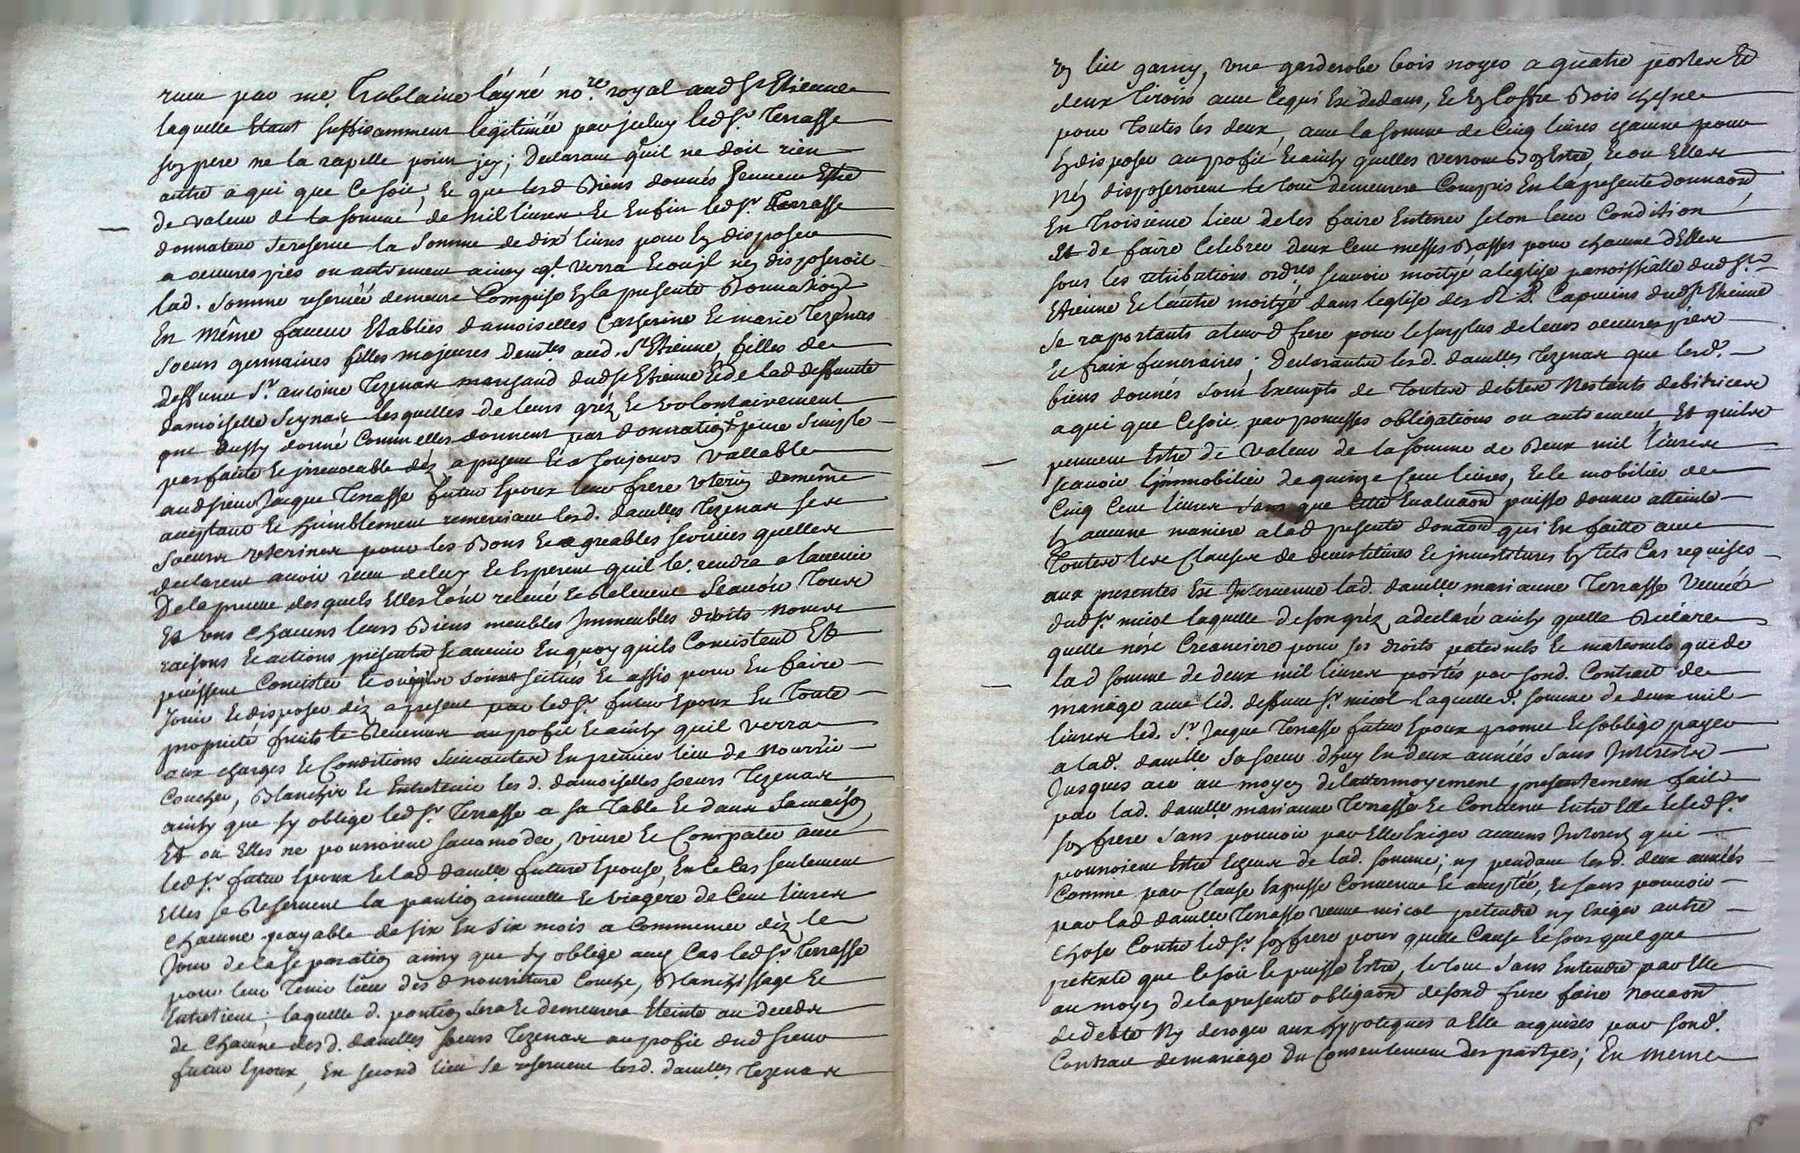 receu par me. Thiblaine l'ayné no.re royal aud St Etienne
laquelle Etant suffisamment legitimée par celuy led Sr. Terrasse
son pere ne la rapelle point jcy; Declarant quil ne doit rien
autre a qui que ce soit, Et que lesd Biens donnés peuvent Estre
de valeur de la somme de mil livres Et Enfin led Sr. Terrasse
donnateur se reserve la somme de dix livres pour En disposer
a oeuvres pies ou autrement ainsy ql. verra Et ou jl n'en disposeroit
lad. somme reservée demeure Comprise En la presente Donnation
En Même faveur Etablies damoiselles Catherine Et marie Tezenas
soeurs germaines filles majeures Demtes aud. St Etienne filles de
deffunt Sr. antoine Tezenas marchand dud St Etienne Et de lad deffunte
damoiselle Seynas lesquelles de leurs gréz Et volontairement
ont aussy donné Comm'elles donnent par donnation pure simple
parfaite Et jrrevocable déz a present Et a Toujours vallable
aud sieur Jacque Terrasse futur Epoux leur frere uterin de même
aceptant Et humblement remerciant lesd. damlles Tezenas ses
soeurs uterines pour les Bons Et agreables services quelles
declarent avoir receu de luy Et Esperent quil leur rendra a lavenir
De la preuve desquels Elles l'ont relevé Et Relevent Scavoir Tous
Et uns Chacuns leurs Biens meubles Jmmeubles droits noms
raisons Et actions présents Et avenir En quoy quils Consistent Et
puissent Consister Et ou qu'ils soint scitués Et assis pour En faire
Jouir Et disposer déz a present par led Sr. futur Epoux En Toute
proprieté fruits Et Revenus au profit Et ainsy quil verra
aux charges Et Conditions suivantes En premier lieu de nourrir
Coucher, Blanchir Et Entretenir les d. damoiselles soeurs Tezenas
ainsy que s'y oblige led Sr. Terrasse a sa Table Et dans sa maison
Et ou Elles ne pourroient sacomoder, vivre Et Compatir avec
led Sr. futur Epoux Et lad damlle future Epouse, En Ce Cas seulement
Elles se Reservent la pantion annuelle Et viagere de Cent livres
Chacune payable de six En six mois a Commencer déz le
Jour de la separation ainsy que s'y oblige aud Cas led Sr Terrasse
pour leur Tenir lieu desd nourriture Couche, Blanchissage Et
Entretient; laquelle d. pantion sera Et demeurera Eteinte au decés
de Chacune desd. damlles soeurs Tezenas au profit dud sieur
futur Epoux, En second lieu se reservent lesd. damlles Tezenas
un lict garny, une garderobe bois noyer a quatre portes Et
deux Tiroirs avec Ce qui Est dedans, Et un Coffre Bois chesne
pour Toutes les deux, avec la somme de Cinq livres chacune pour
En disposer au profit Et ainsy quelles verront Bon Estre, Et ou Elles
N'en disposeroient le tout demeurera Compris En la presente donnaon
En Troisieme lieu de les faire Enterrer selon leur Condition
Et de faire Celebrer deux Cent messes Basses pour chacune d'Elles
sous les retributions ordres scavoir moityé a l'eglise parroissialle dud St.
Etienne Et l'autre moityé dans leglise des R P. Capucins dud St Etienne
se raportants a leurd frere pour le surplus de leurs oeuvres pies
Et fraix funeraires; Declarantes lesd. damlles Tezenas que lesd.
biens donnés sont Exempts de Toutes debtes N'estants debitrices
a qui que Ce soit par promesses obligations ou autrement Et quils
peuvent Estre de valeur de la somme de Deux mil livres
scavoir l'jmmobilier de quinze Cent livres, Et le mobilier de
Cinq Cent livres sans que Cette Evaluaon puisse donner atteinte
En aucune maniere a lad presente donaon qui En faitte avec
Toutes les Clauses de devestitures Et jnvestitures En tels Cas requises
aux presentes Est Jntervenue lad. damlle marianne Terrasse veuve
dud Sr. micol laquelle de son gréz a declaré ainsy quelle Déclare
quelle n'est Creanciere pour ses droits paternels Et maternels que de
lad somme de deux mil livres portés par sond. Contrat de
mariage avec led. deffunt Sr. micol laquelle d. somme de deux mil
livres led. Sr. Jacque Terrasse futur Epoux promet Et soblige payer
a lad. damlle sa soeur d'huy En deux années sans Jnterests
Jusques ace au moyen de lattermoyement presentement fait
par lad. damlle marianne Terrasse Et Convenu Entre Elle Et led Sr.
son frere sans pouvoir par Elle Exiger aucuns Jnterets qui
pourroient Estre Echeus de lad. somme; ny pendant lesd. deux années
Comme par Clause Expresse Convenue Et aceptée, Et sans pouvoir
par lad damlle Terrasse veuve micol pretendre ny Exiger autre
chose Contre led Sr. son frere pour quelle Cause Et sous quelque
pretexte que Ce soit Et puisse Estre, le tout sans Entendre par Elle
au moyen de la presente obligaon de sond frere faire novaon
de debte Ny deroger aux hypoteques a Elle acquises par sond.
Contrat de mariage Du Consentement des partyes; En meme